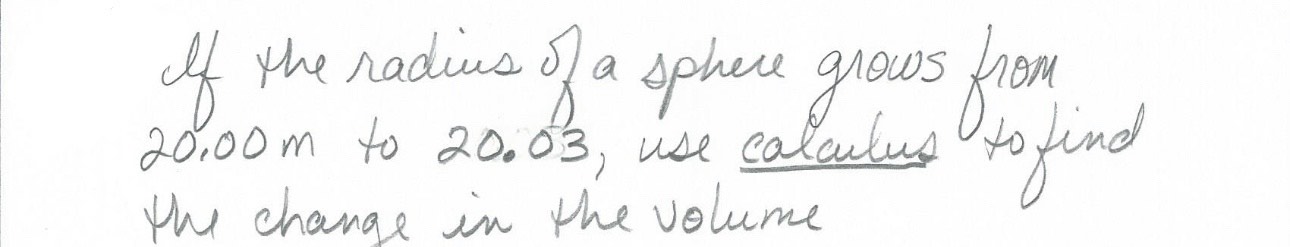 If the radius of a sphere grows from
20.00m to 20.03, use calculus to find
the change in the volume